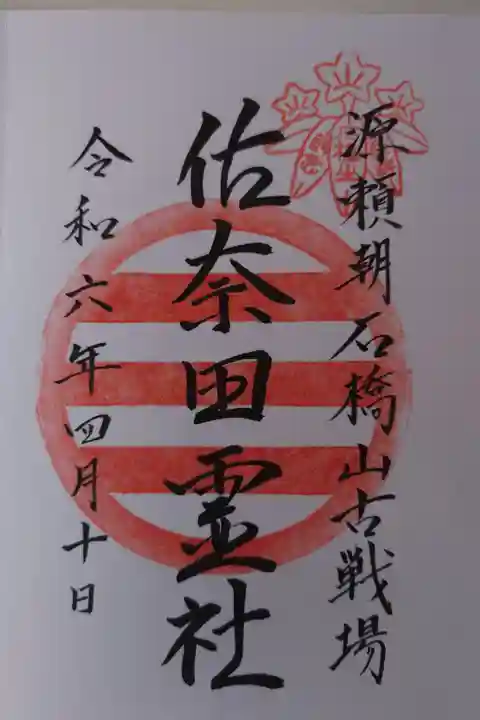 源頼朝石橋山古戦場
佐奈田霊社
令和六年四月十日